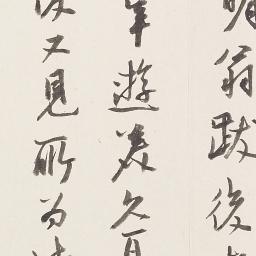 翁跋後
年遊美久
又見所為